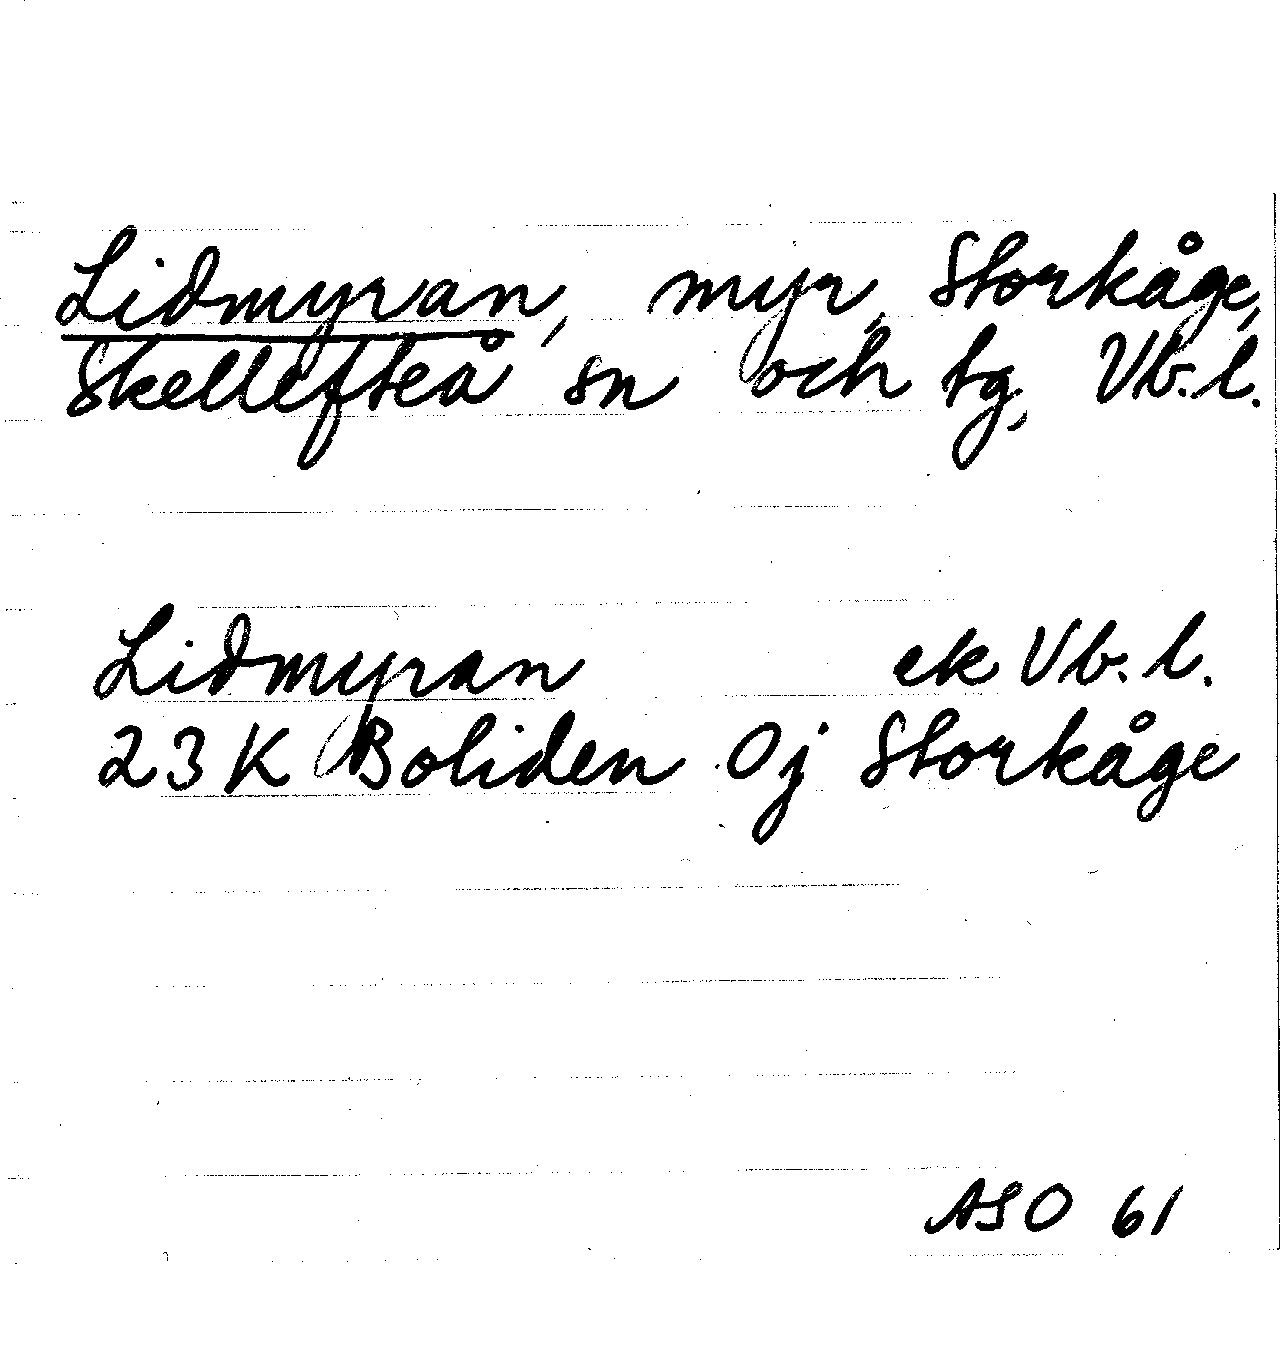 Lidmyran, myr, Storkåge,
Skellefteå sn och tg, Vb.l.
Lidmyran ek Vb.l.
23K Boliden Oj Storkåge
ASO 61